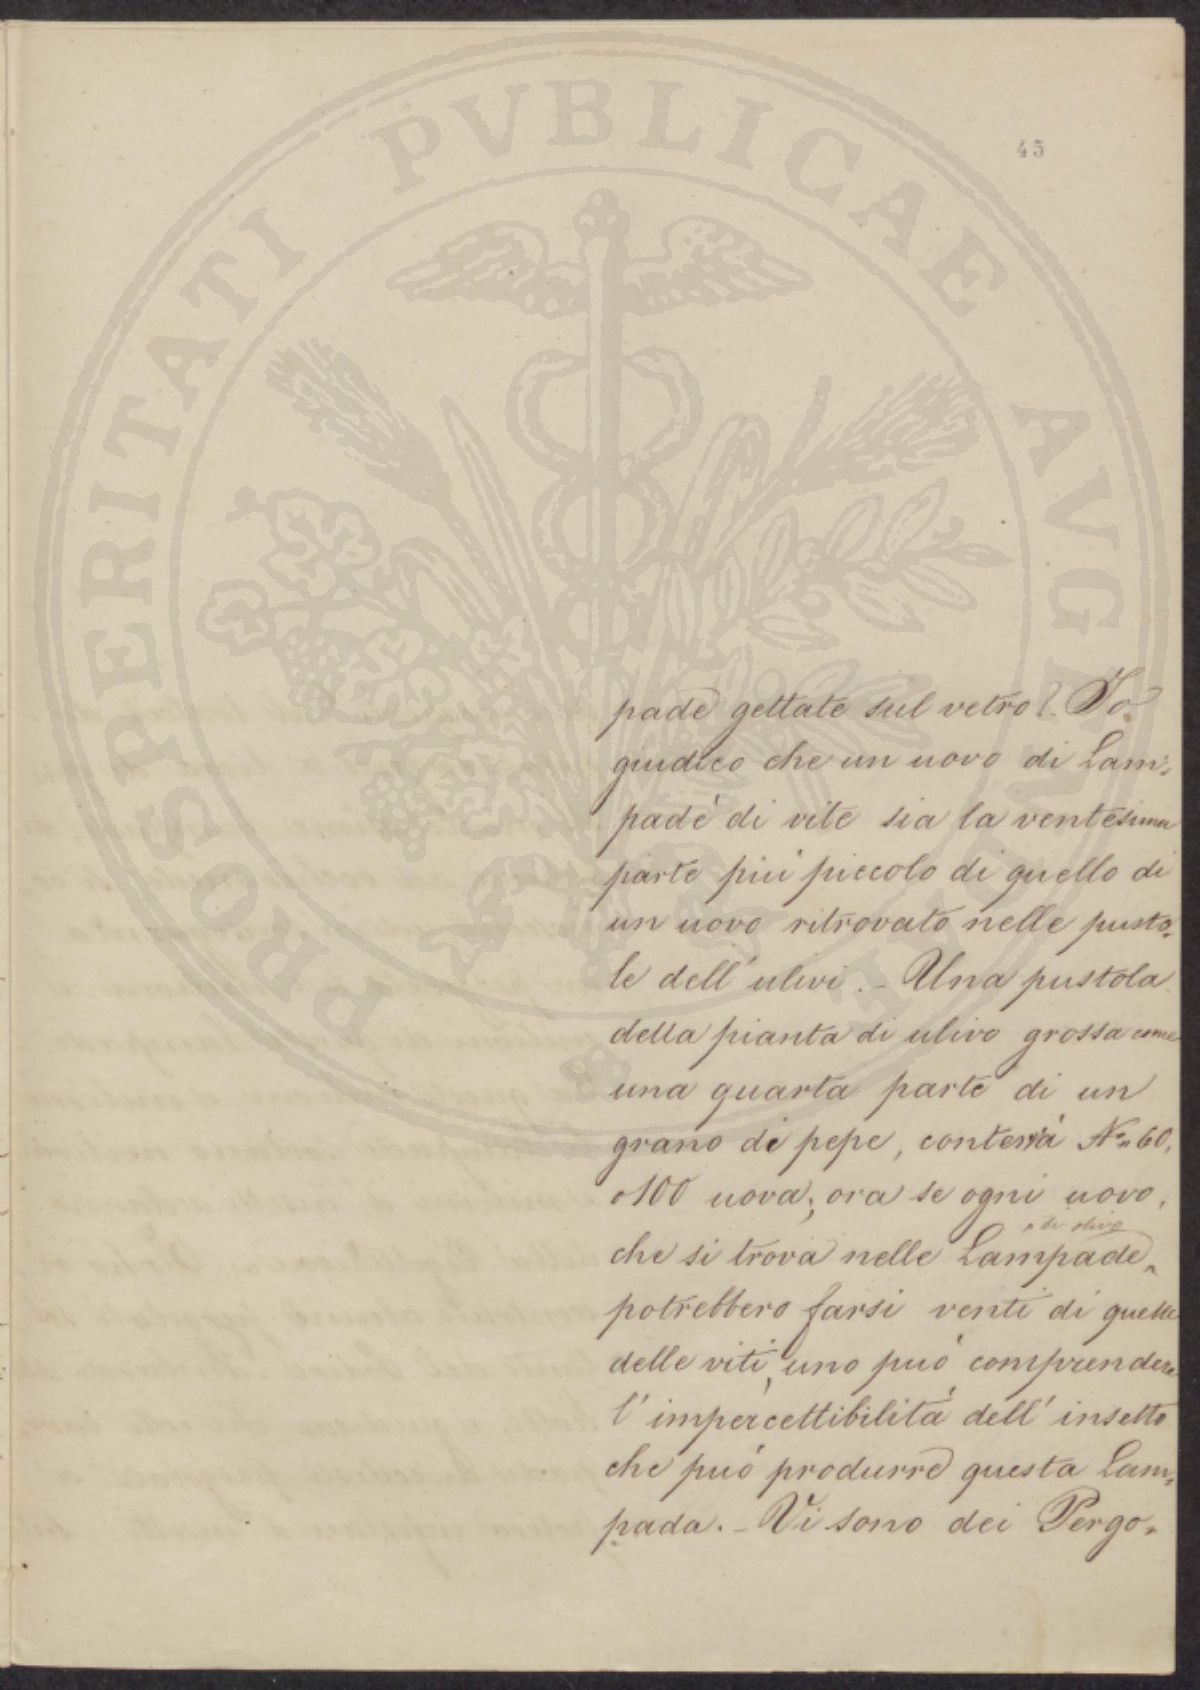 PROSPERITATI PVBLICAE AVGENDAE
45
pade gettate sul vetro? Io
giudico che un uovo di Lam=
pade di vite sia la ventesima
parte più piccolo di quello di
un uovo ritrovato nelle pusto=
le dell' ulivi. - Una pustola
della pianta di ulivo grossa come
una quarta parte di un
grano di pepe, conterrà N.° 60,
o 100 uova; ora se ogni uovo,
che si trova nelle Lampade
di olivo
potrebbero farsi venti di quelle
delle viti, uno può comprendere
l' impercettibilità dell' insetto
che può produrre questa Lam=
pada. - Vi sono dei Pergo=